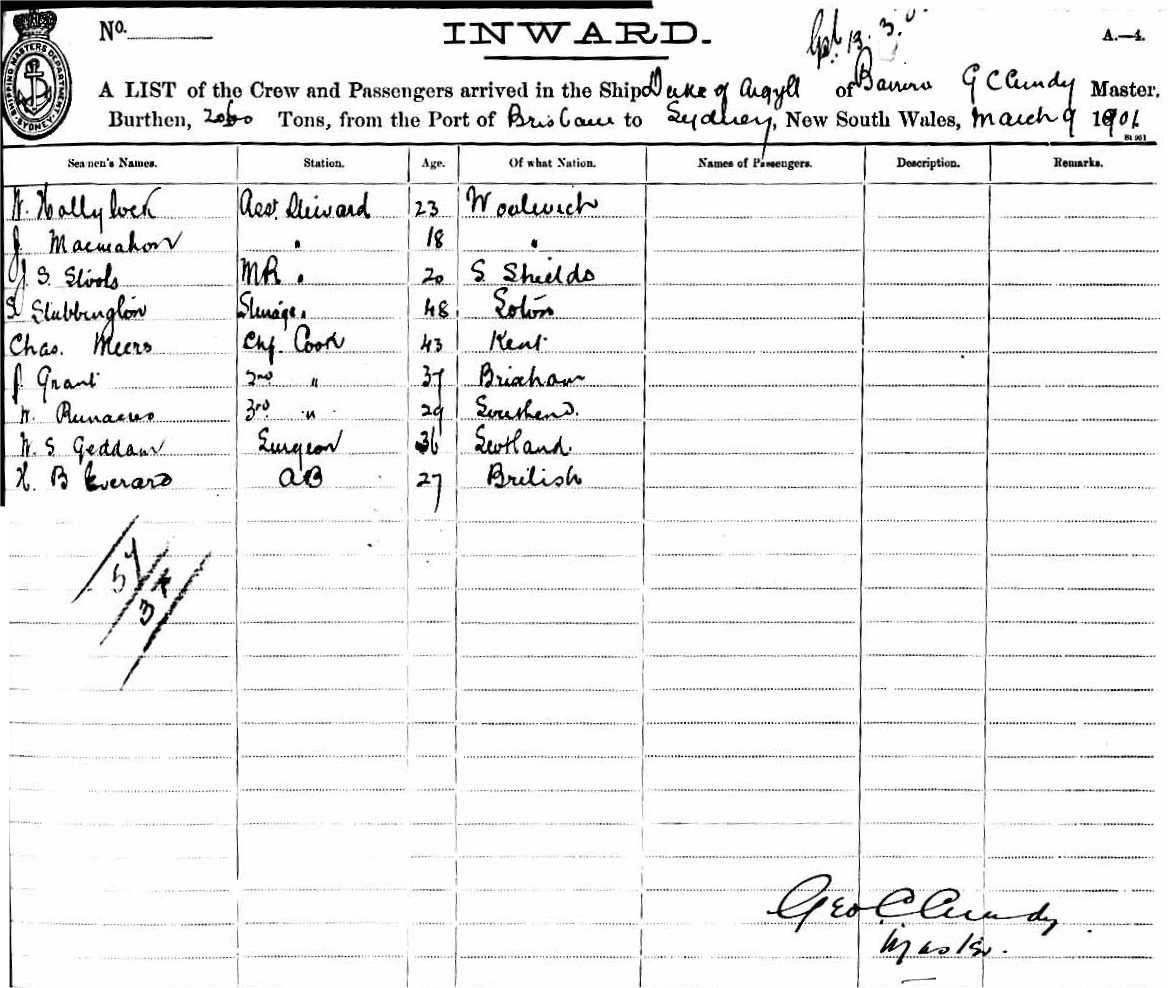 No.
INWARD.
13.3.
A.—4.
SHIPPING MASTERS DEPARTMENT SYDNEY
A LIST of the Crew and Passengers arrived in the Ship Duke of Argyll of Barrow G C Cundy Master,
Burthen, Tons, from the Port of Brisbane to Sydney, New South Wales, March 9 1901
Seamen's Names. Station. Age. Of what Nation. Names of Passengers. Description. Remarks.
W. Hollylock Asst. Steward 23 Woolwich
J. Macmahon " 18 "
J. S. Stools MR " 20 S. Shields
S Stubbington Steerage " 48 Soton
Chas. Meers Chf. Cook 43 Kent
J Grant 2nd " 37 Brixham
W. Runacres 3rd " 29 Southend.
W. S. Geddam Surgeon 36 Scotland.
H. B Everard AB 27 British
57
3
Geo C Cundy
Master.